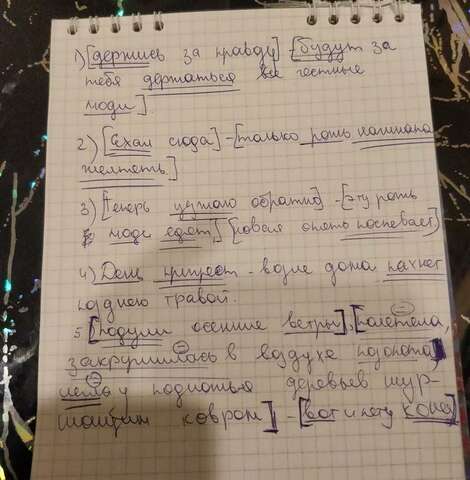 1) [держись за правду] - [будут за
тебя держаться все честные
люди]
2) [Ехал сюда] - [только рожь начинала
желтеть.]
3) [Теперь уезжаю обратно] - [эту рожь
люди едят,] [новая опять поспевает]
4) День чринрест - возле дома пахнет
поднею травой.
5 [подули осенние ветры], [полетела,
закружилась в воздухе позолота,
легла у подножья деревьев шур-
шащим ковром] - [вот и лету конец]